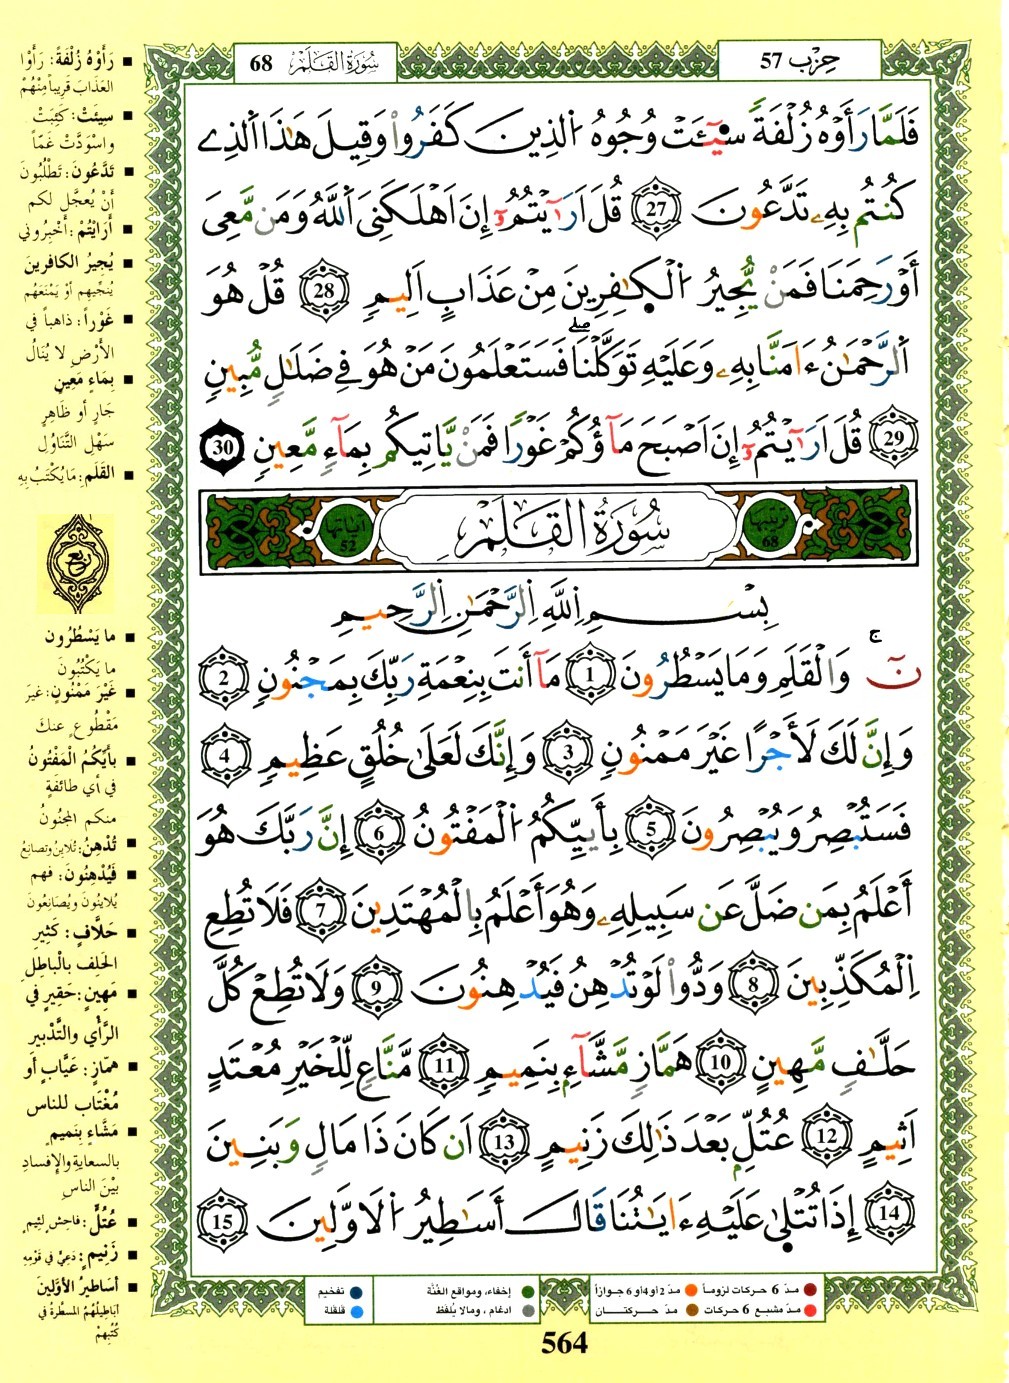 حِزْب 57
سُورَةُ القَلَمِ 68
فَلَمَّا رَأَوْهُ زُلْفَةً سِيٓـَٔتْ وُجُوهُ اُ۬لذِينَ كَفَرُواْ وَقِيلَ هَٰذَا اَ۬لذِے
كُنتُم بِهِۦ تَدَّعُونَ 27 قُلَ اَرَٰٓيْتُمُۥٓ إِنَ اَهْلَكَنِيَ اَ۬للَّهُ وَمَن مَّعِىَ
أَوْ رَحِمَنَا فَمَنْ يُّجِيرُ اُ۬لْكٰ۪فِرِينَ مِنْ عَذَابٍ اَلِيمٍ 28 قُلْ هُوَ
اَ۬لرَّحْمَٰنُ ءَامَنَّا بِهِۦ وَعَلَيْهِ تَوَكَّلْنَاۖ فَسَتَعْلَمُونَ مَنْ هُوَ فِے ضَلَٰلٍ مُّبِينٍ
29 قُلَ اَرَٰٓيْتُمُۥٓ إِنَ اَصْبَحَ مَآؤُكُمْ غَوْرًا فَمَنْ يَّاتِيكُم بِمَآءٍ مَّعِينٍ 30
ترتيبها 68 سُورَةُ القَلَمِ آياتها 52
بِسْمِ اِ۬للَّهِ اِ۬لرَّحْمَٰنِ اِ۬لرَّحِيمِ
نٓ وَالْقَلَمِ وَمَا يَسْطُرُونَ 1 مَآ أَنتَ بِنِعْمَةِ رَبِّكَ بِمَجْنُونٍ 2
وَإِنَّ لَكَ لَأَجْرًا غَيْرَ مَمْنُونٍ 3 وَإِنَّكَ لَعَلَىٰ خُلُقٍ عَظِيمٍ 4
فَسَتُبْصِرُ وَيُبْصِرُونَ 5 بِأَييِّكُمُ اُ۬لْمَفْتُونُ 6 إِنَّ رَبَّكَ هُوَ
أَعْلَمُ بِمَن ضَلَّ عَن سَبِيلِهِۦ وَهْوَ أَعْلَمُ بِالْمُهْتَدِينَ 7 فَلَا تُطِعِ
اِ۬لْمُكَذِّبِينَ 8 وَدُّواْ لَوْ تُدْهِنُ فَيُدْهِنُونَ 9 وَلَا تُطِعْ كُلَّ
حَلَّافٍ مَّهِينٍ 10 هَمَّازٍ مَّشَّآءٍ بِنَمِيمٍ 11 مَّنَّاعٍ لِّلْخَيْرِ مُعْتَدٍ
اَثِيمٍ 12 عُتُلٍّ بَعْدَ ذَٰلِكَ زَنِيمٍ 13 اَن كَانَ ذَا مَالٍ وَبَنِينَ
14 إِذَا تُتْلَىٰ عَلَيْهِ ءَايَٰتُنَا قَالَ أَسَٰطِيرُ اُ۬لَاوَّلِينَ 15
رَأَوْهُ زُلْفَةً: رَأَوْا
العَذَابَ قَرِيباً مِنْهُمْ
سِيئَتْ: كَئِبَتْ
واسْوَدَّتْ غَمّاً
تَدَّعُونَ: تَطْلُبُونَ
أَنْ يُعَجَّلَ لكم
أَرَايْتُمْ: أَخْبِرُوني
يُجِيرُ الكافرين
يُنَجِّيهِم أوْ يَمْنَعُهم
غَوْراً: ذاهباً في
الأَرْضِ لا يُنَالُ
بِمَاءٍ مَعِينٍ
جَارٍ أو ظَاهِرٍ
سَهْلِ التَّنَاوُلِ
القَلَمِ: مَا يُكْتَبُ بِهِ
ربع
ما يَسْطُرُون
ما يَكْتُبُونَ
غَيْرَ مَمْنُونٍ: غيرَ
مَقْطُوعٍ عنكَ
بأيِّكُمُ الْمَفْتُونُ
في أي طائفةٍ
منكم المجْنُونُ
تُدْهِنُ: تُلايِنُ وتصانِعُ
فَيُدْهِنُونَ: فهم
يُلاينُون ويُصَانِعُونَ
حَلَّافٍ: كَثِيرِ
الحَلِفِ بالْباطِلِ
مَهِينٍ: حَقِيرٍ في
الرَّأْي والتَّدْبير
هَمَّازٍ: عَيَّابٍ أو
مُغْتَابٍ للناس
مَشَّاءٍ بِنَمِيمٍ
بالسعايةِ والإفسادِ
بيْنَ الناسِ
عُتُلٍّ: فاحِشٍ لئيمٍ
زَنِيمٍ: دَعِيٍّ في قَوْمِهِ
أساطيرُ الأوَّلينَ
أباطِيلُهُمُ المسَطَّرةُ في
كُتُبِهِمْ
مدّ 6 حركات لزوماً مدّ 2 أو 4 أو 6 جوازاً إخفاء، ومواقع الغُنَّة تفخيم
مدّ مشبع 6 حركات مدّ حركتان ادغام، ومالا يُلفَظ قلقلة
564